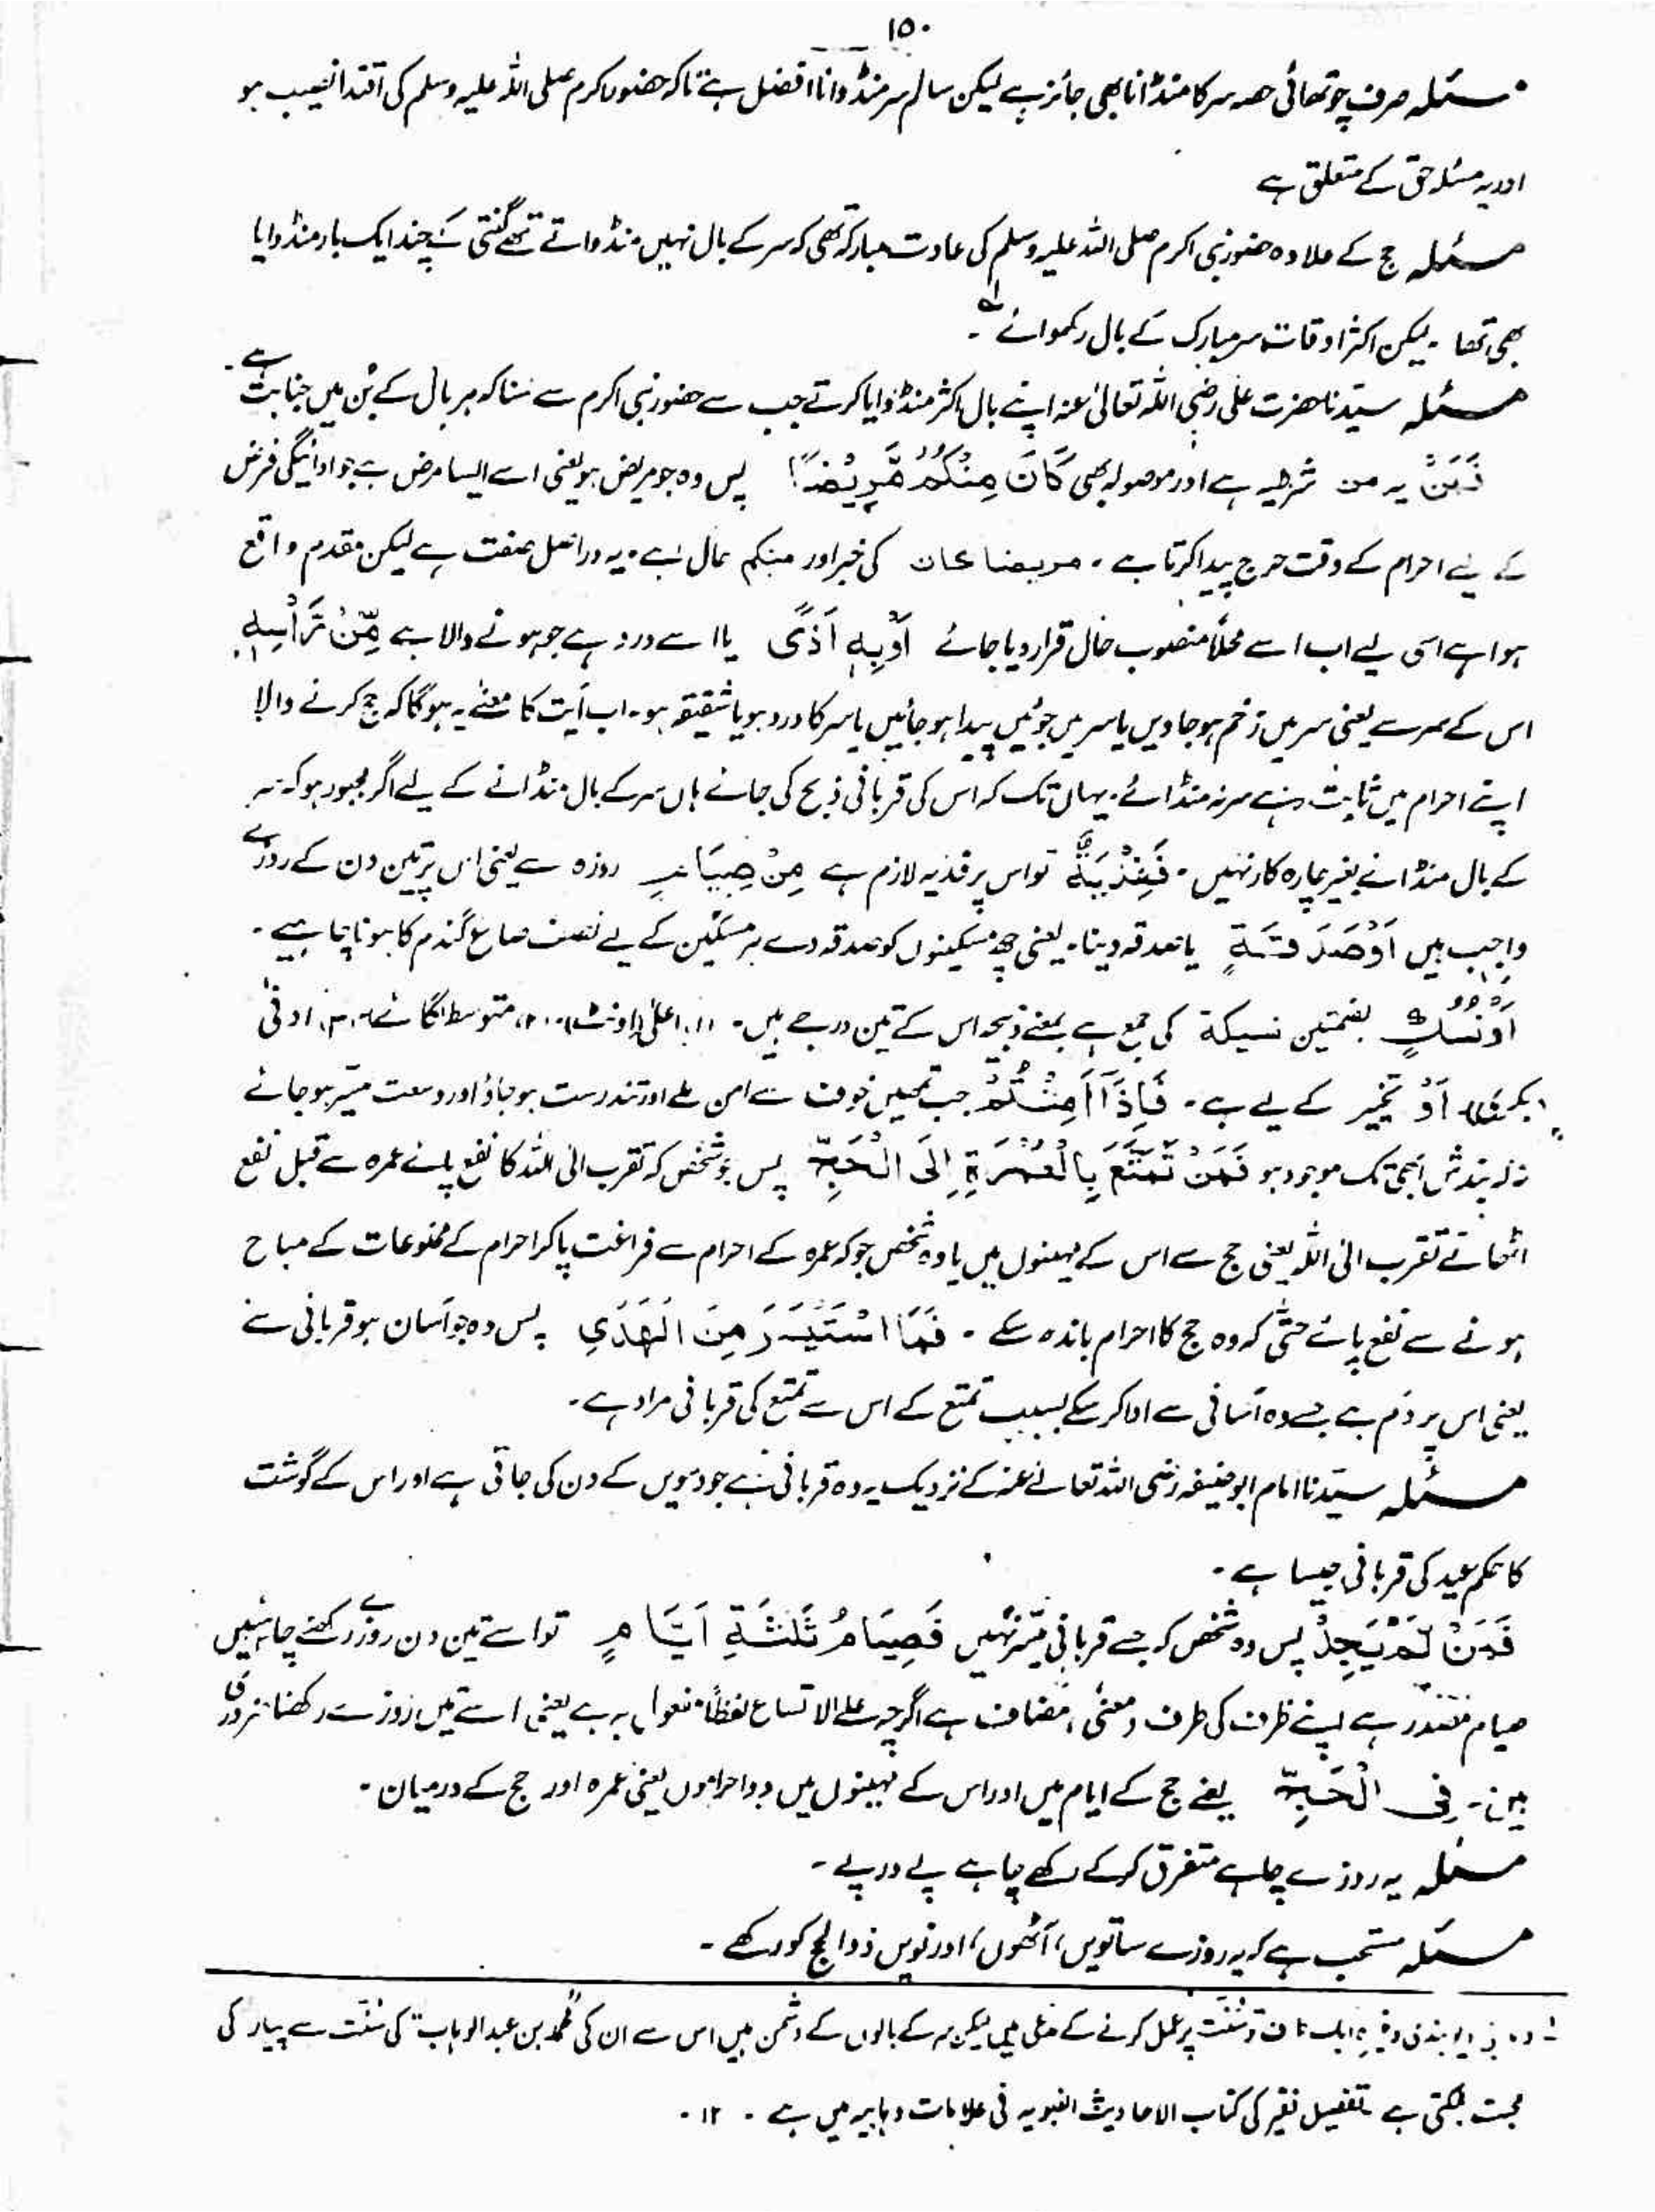 ۱۵۰
مسئلہ صرف چوتھائی حصہ سر کا منڈانا بھی جائز ہے لیکن سالم سر منڈوانا افضل ہے تاکہ حضور اکرم صلی اللہ علیہ وسلم کی اقتدا نصیب ہو
اور یہ مسئلہ حق کے متعلق ہے
مسئلہ حج کے علاوہ حضور نبی اکرم صلی اللہ علیہ وسلم کی عادت مبارکہ تھی کہ سر کے بال نہیں منڈواتے تھے گنتی کے چند ایک بار منڈوایا
بھی تھا ۔ لیکن اکثر اوقات سر مبارک کے بال رکھوائے لہ ۔
مسئلہ سیدنا حضرت علی رضی اللہ تعالیٰ عنہ اپنے بال اکثر منڈوایا کرتے جب سے حضور نبی اکرم سے سنا کہ ہر بال کے بُن میں جنابت ہے ۔
فَمَنْ یہ من شرطیہ ہے اور موصولہ بھی كَانَ مِنْكُمْ مَّرِيْضًا پس وہ جو مریض ہو یعنی اسے ایسا مرض ہے جو ادائیگی فرض
کے لیے احرام کے وقت حرج پیدا کرتا ہے ۔ مریضا کان کی خبر اور منکم حال ہے ۔ یہ دراصل صفت ہے لیکن مقدم واقع
ہوا ہے اسی لیے اب اسے محلاً منصوب حال قرار دیا جائے اَوْ بِهٖ اَذًى یا اسے درد ہے جو ہونے والا ہے مِّنْ رَّاْسِهٖ
اس کے سر سے یعنی سر میں زخم ہو جاویں یا سر میں جوئیں پیدا ہو جائیں یا سر کا درد ہو یا شقیقہ ہو ۔ اب آیت کا معنےٰ یہ ہوگا کہ حج کرنے والا
اپنے احرام میں ثابت رہے سر نہ منڈائے ۔ یہاں تک کہ اس کی قربانی ذبح کی جائے ہاں سر کے بال منڈانے کے لیے اگر مجبور ہو کہ سر
کے بال منڈانے بغیر چارہ کار نہیں ۔ فَفِدْيَةٌ تو اس پر فدیہ لازم ہے مِنْ صِيَامٍ روزہ سے یعنی اس پر تین دن کے روزے
واجب ہیں اَوْ صَدَقَةٍ یا صدقہ دینا ۔ یعنی چھ مسکینوں کو صدقہ دے ہر مسکین کے لیے نصف صاع گندم کا ہونا چاہیے ۔
اَوْ نُسُكٍ بضمتین نسیکة کی جمع ہے بمعنے ذبیحہ اس کے تین درجے ہیں ۔ (۱) اعلیٰ (اونٹ) ۔ (۲) متوسط (گائے) (۳) ادنیٰ
(بکری) اَوْ تخییر کے لیے ہے ۔ فَاِذَآ اَمِنْتُمْ جب تمہیں خوف سے امن ملے اور تندرست ہو جاؤ اور وسعت میسر ہو جائے
نہ بندش ابھی تک موجود ہو فَمَنْ تَمَتَّعَ بِالْعُمْرَةِ اِلَى الْحَجِّ پس جو شخص کہ تقرب الی اللہ کا نفع پائے عمرہ سے قبل نفع
اٹھانے تقرب الی اللہ یعنی حج سے اس کے مہینوں میں یا وہ شخص جو کہ عمرہ کے احرام سے فراغت پا کر احرام کے ممنوعات کے مباح
ہونے سے نفع پائے حتٰی کہ وہ حج کا احرام باندھ سکے ۔ فَمَا اسْتَيْسَرَ مِنَ الْهَدْيِ پس وہ جو آسان ہو قربانی سے
یعنی اس پر دَم ہے جسے وہ آسانی سے ادا کر سکے بسبب تمتع کے اس سے تمتع کی قربانی مراد ہے ۔
مسئلہ سیدنا امام ابو حنیفہ رضی اللہ تعالےٰ عنہ کے نزدیک یہ وہ قربانی ہے جو دسویں کے دن کی جاتی ہے اور اس کے گوشت
کا حکم عید کی قربانی جیسا ہے ۔
فَمَنْ لَّمْ يَجِدْ پس وہ شخص کہ جسے قربانی میسر نہیں فَصِيَامُ ثَلٰثَةِ اَيَّامٍ تو اسے تین دن روزے رکھنے چاہئیں
صیام مصدر ہے اپنے ظرف کی طرف (معنیً) مضاف ہے اگرچہ علے الاتساع لفظاً مفعول بہ ہے یعنی اسے تین روزے رکھنا ضروری
ہیں ۔ فِى الْحَجِّ یعنے حج کے ایام میں اور اس کے مہینوں میں دو احراموں یعنی عمرہ اور حج کے درمیان ۔
مسئلہ یہ روزے چاہے متفرق کرکے رکھے چاہے پے در پے ۔
مسئلہ مستحب ہے کہ یہ روزے ساتویں، آٹھویں، اور نویں ذوالحج کو رکھے ۔
دیوبندی وغیرہ سنت پر عمل کرنے کے مدعی ہیں لیکن سر کے بالوں کے دشمن ہیں اس سے ان کی "محمد بن عبد الوہاب" کی سنت سے پیار کی
محبت جھلکتی ہے تفصیل فقیر کی کتاب الاحادیث النبویہ فی علامات وہابیہ میں ہے ۔ ۱۲ ۔